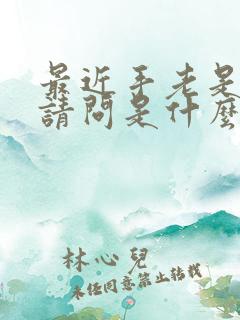 最近手老是
請問是什麼
林心兒
未經同意禁止轉載